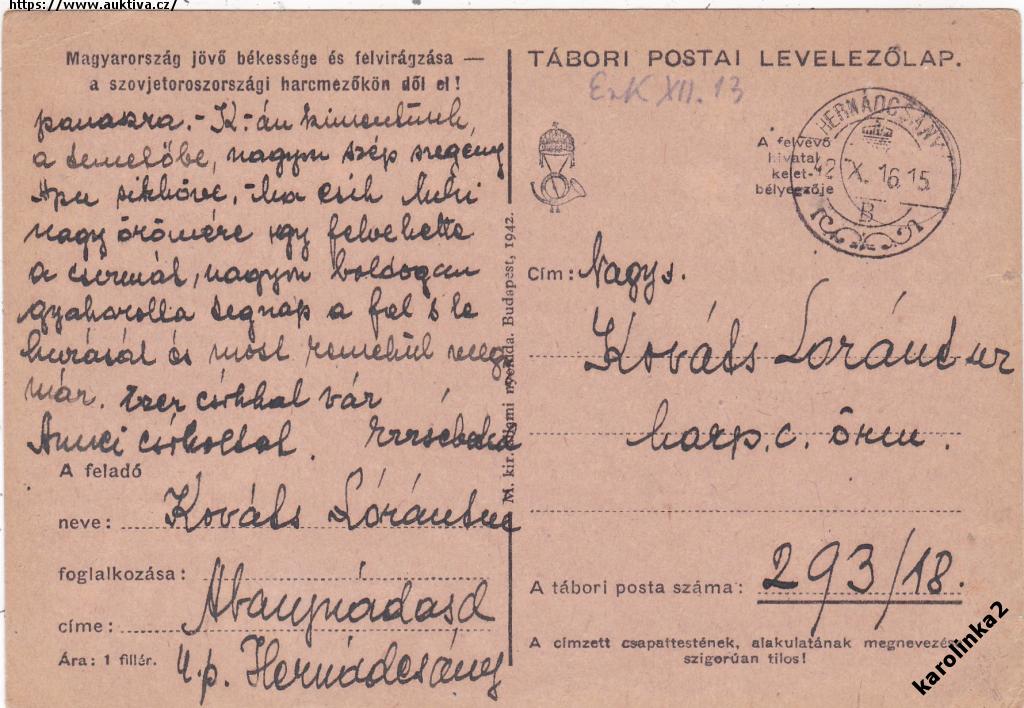 https://www.auktiva.cz/
Magyarország jövő békessége és felvirágzása —
a szovjetoroszországi harcmezőkön dől el!
panaszra. - K-án kimentünk,
a temetőbe, nagyon szép szegény
Apu sírköve, - ma
nagy örömére így felvehette
a csizmát, nagyon boldogan
a fel s le
húzását és most reméljük meg
már. Ezer csókkal vár
Anuci csókoltat. Erzsébeted
A feladó
neve: Kováts Lórántné
foglalkozása:
címe: Abaujnádasd
u.p. Hernádcsány
Ára: 1 fillér.
M. kir. állami nyomda. Budapest, 1942.
TÁBORI POSTAI LEVELEZŐLAP.
XII. 13
A felvevő
hivatal
kelet-
bélyegzője
HERNÁDCSÁNY
42 X. 16 15
B
Cím: Nagys.
Kováts Loránd úr
karp. c. őrm.
A tábori posta száma: 293/18.
A címzett csapattestének, alakulatának megnevezése
szigorúan tilos!
karolinka2